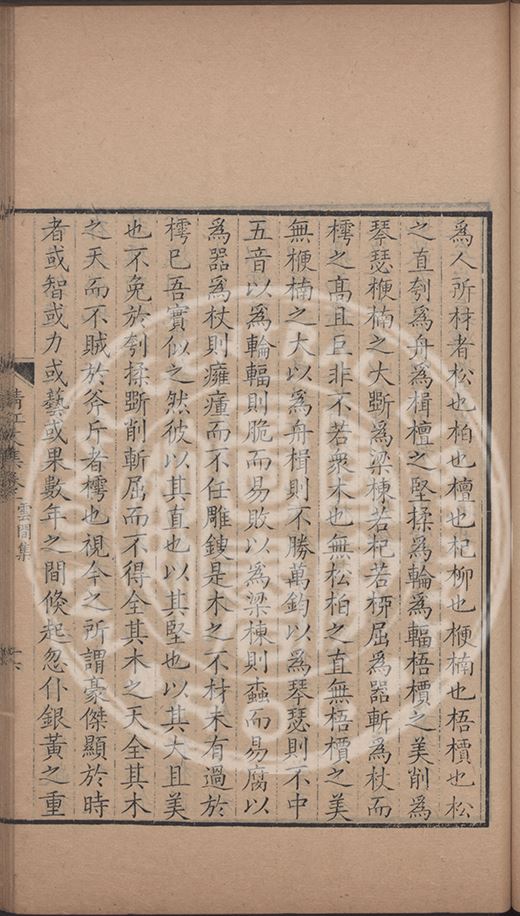 為人所材者松也柏也檀也杞柳也楩楠也梧檟也松
之直刳為舟為楫檀之堅揉為輪為輻梧檟之美削為
琴瑟楩楠之大斲為梁棟若杞若栁屈為器斬為杖而
樗之髙且巨非不若衆木也無松柏之直無梧檟之美
無楩楠之大以為舟楫則不勝萬鈞以為琴瑟則不中
五音以為輪輻則脆而易敗以為梁棟則蠧而易腐以
為器為杖則癰瘇而不任雕鎪是木之不材未有過於
樗已吾實似之然彼以其直也以其堅也以其大且美
也不免於刳揉斲削斬屈而不得全其木之天全其木
之天而不賊於斧斤者樗也視今之所謂豪傑顯於時
者或智或力或藝或果數年之間倐起忽仆銀黃之重
清江文集卷
雲間集